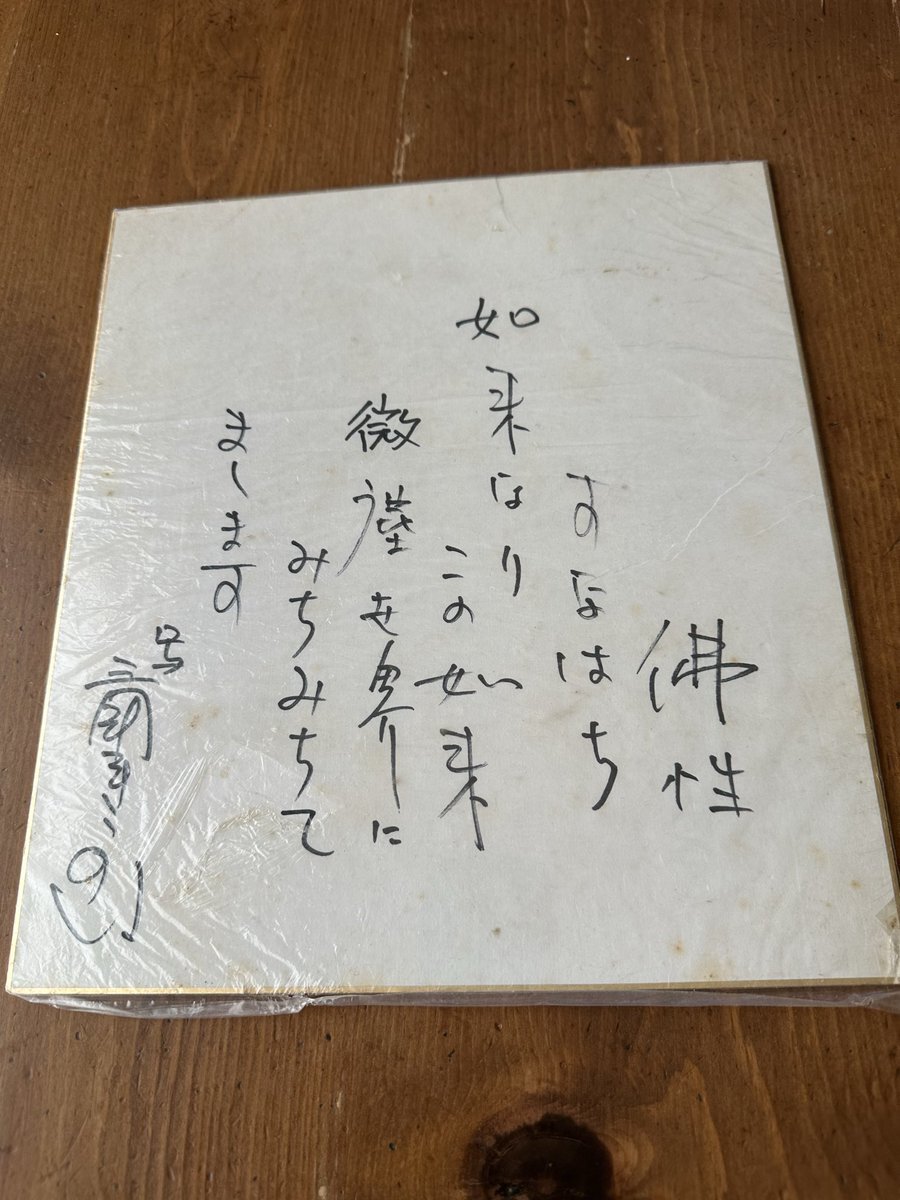 佛性
すなはち
如来なり
この如来
微塵世界に
みちみちて
まします